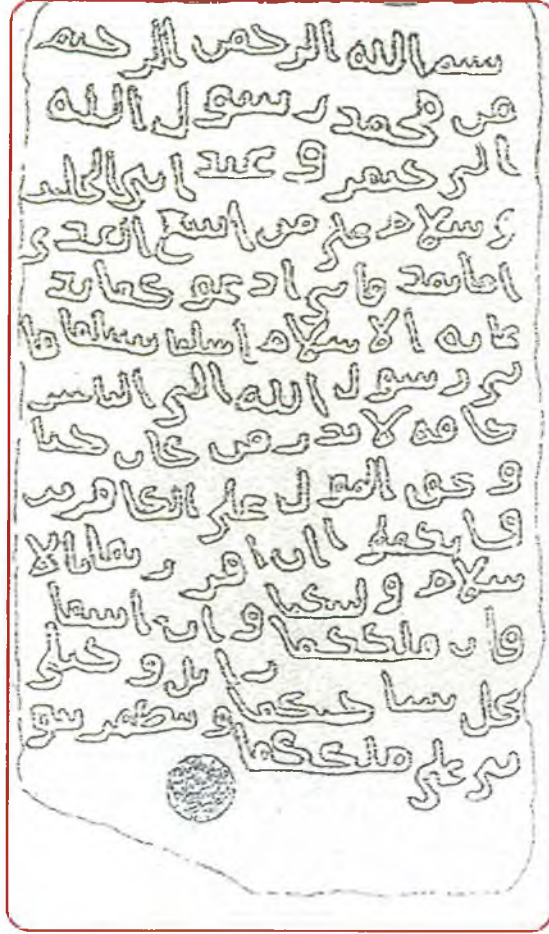 بسم الله الرحمن الرحيم
من محمد رسول الله
الى جيفر و عبد ابنى الجلند
ى و سلام على من اتبع الهدى
اما بعد فانى ادعو كما بد
عايه الا سلام اسلما تسلما فا
نى رسول الله الى الناس
كافه لا نذر من كان حيا
و يحق القول على الكافرين
فانكما ان اقررتما بالا
سلام وليتكما و ان ابيتما
فان ملككما زايل و خيلى
تحل بساحتكما و تظهر نبو
تى على ملككما